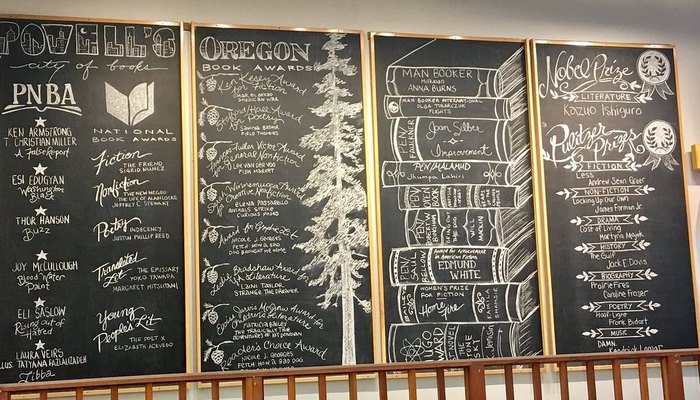 POWELL'S
city of books
PNBA
KEN ARMSTRONG
T. CHRISTIAN MILLER
A False Report
ESI EDUGYAN
Washington
Black
THOR HANSON
Buzz
JOY McCULLOUGH
Blood Water
Paint
ELI SASLOW
Rising out of
Hatred
LAURA VEIRS
ILLUS. TATYANA FAZLALIZADEH
Libba
NATIONAL
BOOK AWARDS
Fiction
THE FRIEND
SIGRID NUNEZ
Nonfiction
THE NEW NEGRO
THE LIFE OF ALAIN LOCKE
JEFFREY C. STEWART
Poetry
INDECENCY
JUSTIN PHILLIP REED
Translated
Lit
THE EMISSARY
YOKO TAWADA
MARGARET MITSUTANI
Young
People's Lit
THE POET X
ELIZABETH ACEVEDO
OREGON
BOOK AWARDS
Ken Kesey Award
for Fiction
OMAR EL AKKAD
AMERICAN WAR
Stafford/Hall Award
for Poetry
FIELD THEORIES
General Nonfiction
LEE VAN DER VOO
FISH MARKET
Creative Nonfiction
ELENA PASSARELLO
ANIMALS STRIKE
CURIOUS POSES
Award for Graphic Lit
NICOLE J. GEORGES
FETCH: HOW A BAD
DOG BROUGHT ME HOME
Children's Literature
LAINI TAYLOR
STRANGE THE DREAMER
Young Adult Literature
Readers Choice Award
NICOLE J. GEORGES
FETCH: HOW A BAD DOG
MAN BOOKER
Milkman
ANNA BURNS
MAN BOOKER INTERNATIONAL
OLGA TOKARCZUK
FLIGHTS
PEN/
FAULKNER
Joan Silber
Improvement
PEN/MALAMUD
Jhumpa Lahiri
PEN/
SAUL
BELLOW
Award for Achievement
in American Fiction
EDMUND
WHITE
WOMEN'S PRIZE
FOR FICTION
Home Fire
KAMILA
SHAMSIE
HUGO
AWARD
Nobel Prize
LITERATURE
Kazuo Ishiguro
Pulitzer Prizes
FICTION
Less
Andrew Sean Greer
NON-FICTION
Locking Up Our Own
James Forman Jr.
DRAMA
Cost of Living
Martyna Majok
HISTORY
The Gulf
Jack E. Davis
BIOGRAPHY
Prairie Fires
Caroline Fraser
POETRY
Half-Light
Frank Bidart
MUSIC
DAMN.
Kendrick Lamar